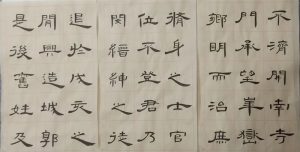 追於戌亥之
間興造城郭
是後舊姓及
脩身之士官
位不登君乃
閔縉紳之徒
不濟開南寺
門承望華嶽
鄉明而治庶